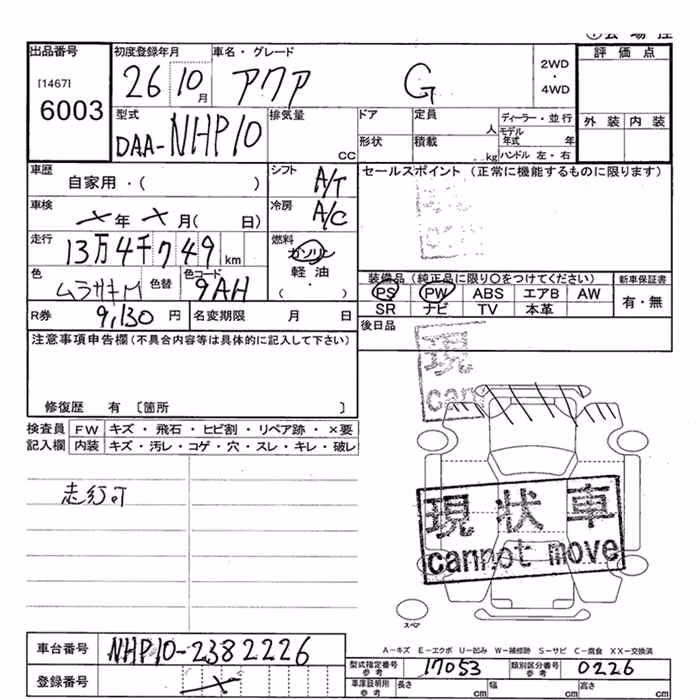 出品番号
[1467]
6003
初度登録年月
26 10月
車名・グレード
アクア G
2WD
・
4WD
評価点
外装 内装
型式
DAA-NHP10
排気量
CC
ドア
形状
定員
人
積載
kg
ディーラー・並行
モデル年式 年
ハンドル 左・右
車歴
自家用・( )
シフト
A/T
セールスポイント(正常に機能するものに限ります)
車検
×年×月( 日)
冷房
A/C
走行
13万4千749km
燃料
ガソリン
軽油
(・)
色
ムラサキM
色替
色コード
9AH
装備品(純正品に限り○をつけてください)
PS PW ABS エアB AW
SR ナビ TV 本革
新車保証書
有・無
R券
9,130円
名変期限 月 日
後日品
注意事項申告欄(不具合内容等は具体的に記入して下さい)
現
can
修復歴 有 [箇所 ]
検査員
記入欄
FW キズ・飛石・ヒビ割・リペア跡・×要
内装 キズ・汚レ・コゲ・穴・スレ・キレ・破レ
走行可
現状車
cannot move
スペア
A-キズ E-エクボ U-凹み W-補修跡 S-サビ C-腐食 XX-交換済
車台番号
NHP10-2382226
登録番号
×
型式指定番号
参考
17053
類別区分番号
参考
0226
車庫証明用
参考
長さ cm
幅 cm
高さ cm